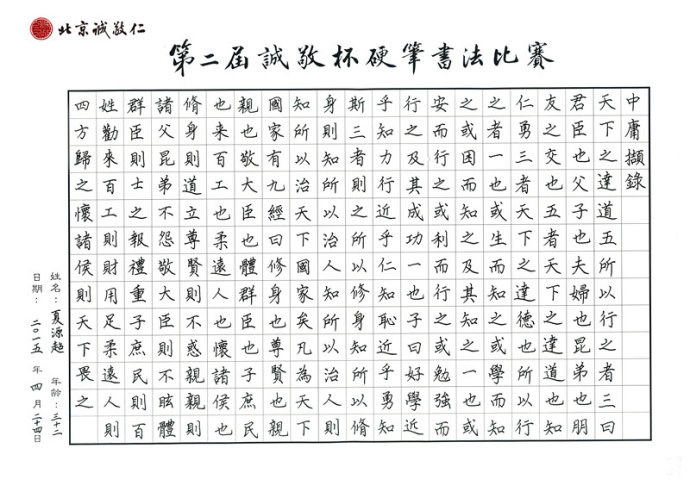 北京誠敬仁
第二屆誠敬杯硬筆書法比賽
中庸擷錄
天下之達道五所以行之者三曰
君臣也父子也夫婦也昆弟也朋
友之交也五者天下之達道也知
仁勇三者天下之達德也所以行
之者一也或生而知之或學而知
之或困而知之及其知之一也或
安而行之或利而行之或勉強而
行之及其成功一也子曰好學近
乎知力行近乎仁知恥近乎勇知
斯三者則知所以脩身知所以脩
身則知所以治人知所以治人則
知所以治天下國家矣凡為天下
國家有九經曰脩身也尊賢也親
親也敬大臣也體群臣也子庶民
也來百工也柔遠人也懷諸侯也
脩身則道立尊賢則不惑親親則
諸父昆弟不怨敬大臣則不眩體
群臣則士之報禮重子庶民則百
姓勸來百工則財用足柔遠人則
四方歸之懷諸侯則天下畏之
姓名：夏源超 年齡：三十二
日期：二〇一五年四月二十四日